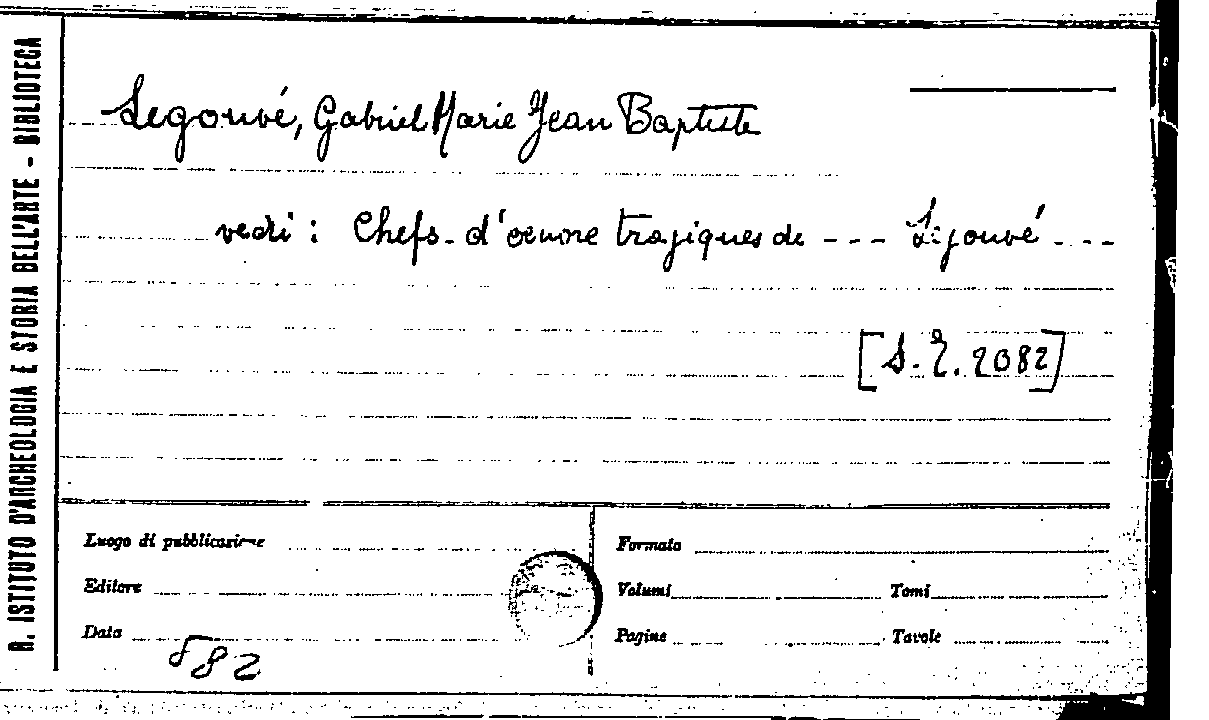 R. ISTITUTO D'ARCHEOLOGIA E STORIA DELL'ARTE - BIBLIOTECA
Legouvé, Gabriel Marie Jean Baptiste
vedi : Chefs-d'oeuvre tragiques de --- Legouvé ---
[S. T. 2082]
Luogo di pubblicazione
Editore
Data
Formato
Volumi Tomi
Pagine Tavole
582